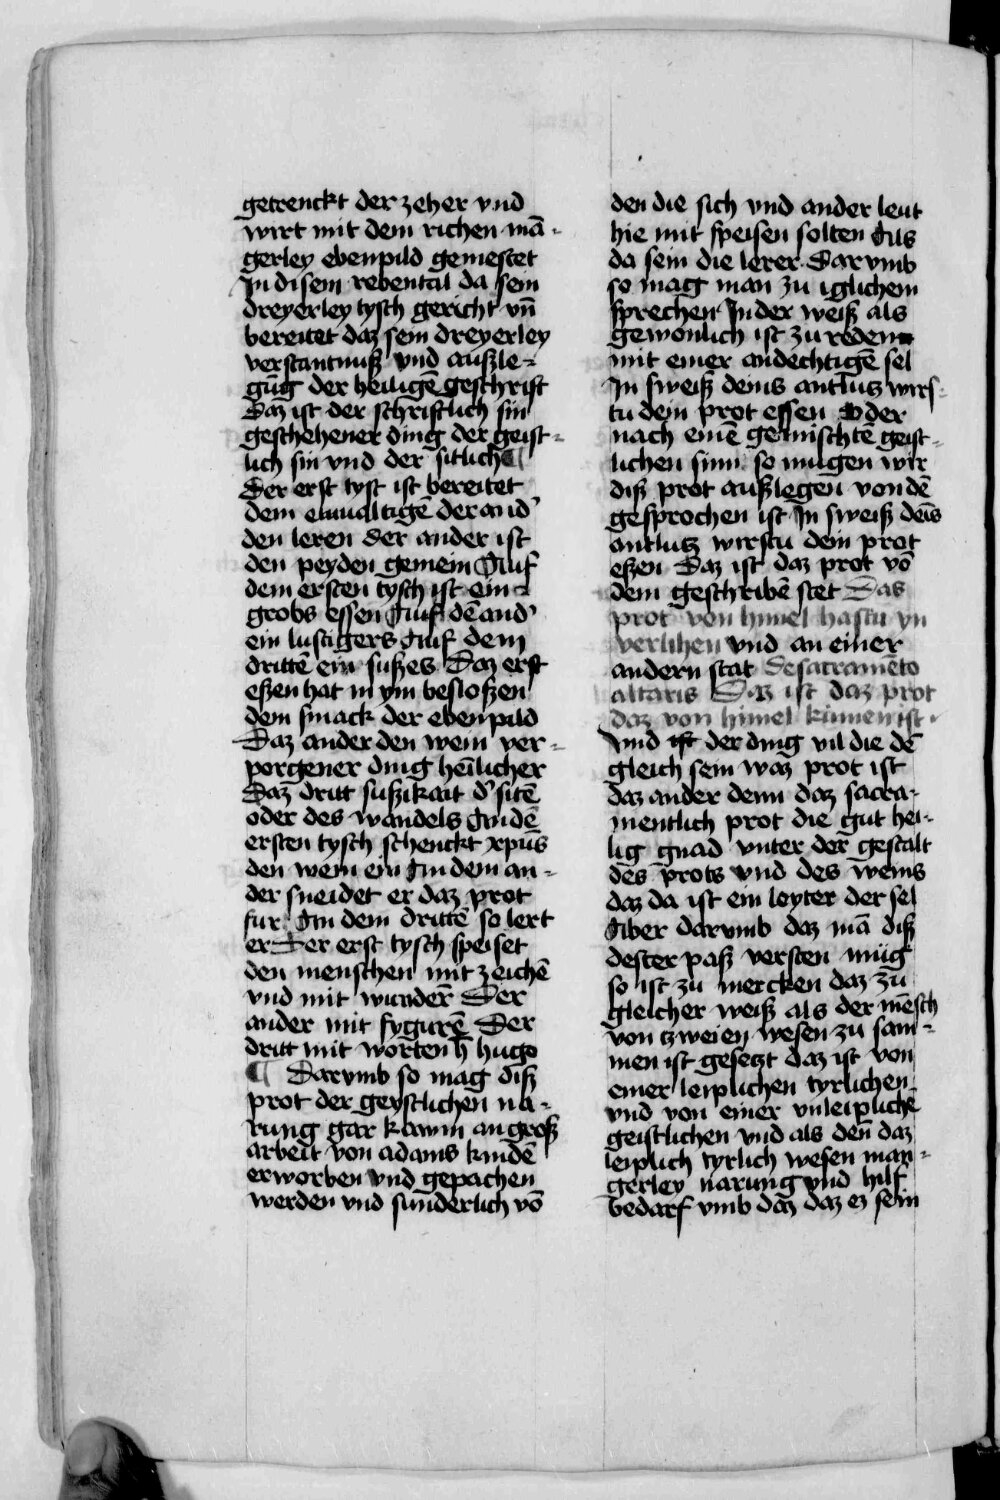 getrenckt der zeher vnd
wirt mit dem richen mā-
gerley ebenpild gemestet
In disem rebental da sein
dreyerley tysch gericht vn̄
bereitet daz sein dreyerley
verstantnuß vnd außle-
gūg der heiligē geschrift
Daz ist der schriftlich sin
geschehener ding der geist-
lich sin vnd der sitlich ¶
Der erst tyst ist bereitet
dem einualtigē der and'
den leren der ander ist
den peyden gemein Auf
dem ersten tysch ist ein
grobs essen Auf dē and'
ein lustigers Auf dem
drittē ein sußes Daz erst
eßen hat in ym besloßen
dem smack der ebenpild
Daz ander den wein ver-
porgener ding heilicher
Daz dritt sußikait d' sitē
oder des wandels An dē
ersten tysch schenckt xpūs
den wein ein An dem an-
der sneidet er daz prot
fur An dem drittē so lert
er Der erst tysch speiset
den menschen mit zeichē
vnd mit wunderē Der
ander mit fygurē Der
dritt mit worten h̄ hugo
¶ Darvmb so mag diß
prot der geystlichen na-
rung gar kawm an groß
arbeit von adams kindē
erworben vnd gepachen
werden vnd sunderlich vō
den die sich vnd ander leut
hie mit speisen solten Als
da sein die lerer Darvmb
so mag man zu iglichem
sprechen In der weiß als
gewonlich ist zu reden
mit einer andechtigē sel
In sweiß deins antlutz wirs-
tu dein prot essen Oder
nach einē gemischtē geist-
lichen sinn so mugen wir
diß prot außlegen von dē
gesprochen ist In sweiß deīs
antlutz wirstu dein prot
eßen Daz ist daz prot vō
dem geschribē stet Das
prot von himel hastu yn
verlihen vnd an einer
andern stat De sacramēto
altaris Daz ist daz prot
daz von himel kumen ist
Vnd ist der ding vil die dē
gleich sein waz prot ist
daz ander denn daz sacra-
mentlich prot die gut hei-
lig gnad vnter der gestalt
des prots vnd des weins
daz da ist ein leyter der sel
Aber darvmb daz mā diß
dester paß versten müg
so ist zu mercken daz zu
gleicher weiß als der mēsch
von zweien wesen zu sam-
men ist gesetzt daz ist von
einer leiplichen tyrlichen
vnd von einer vnleiplichē
geistlichen vnd als den daz
leiplich tyrlich wesen man-
gerley narung vnd hilf
bedarf vmb daz daz ez sein